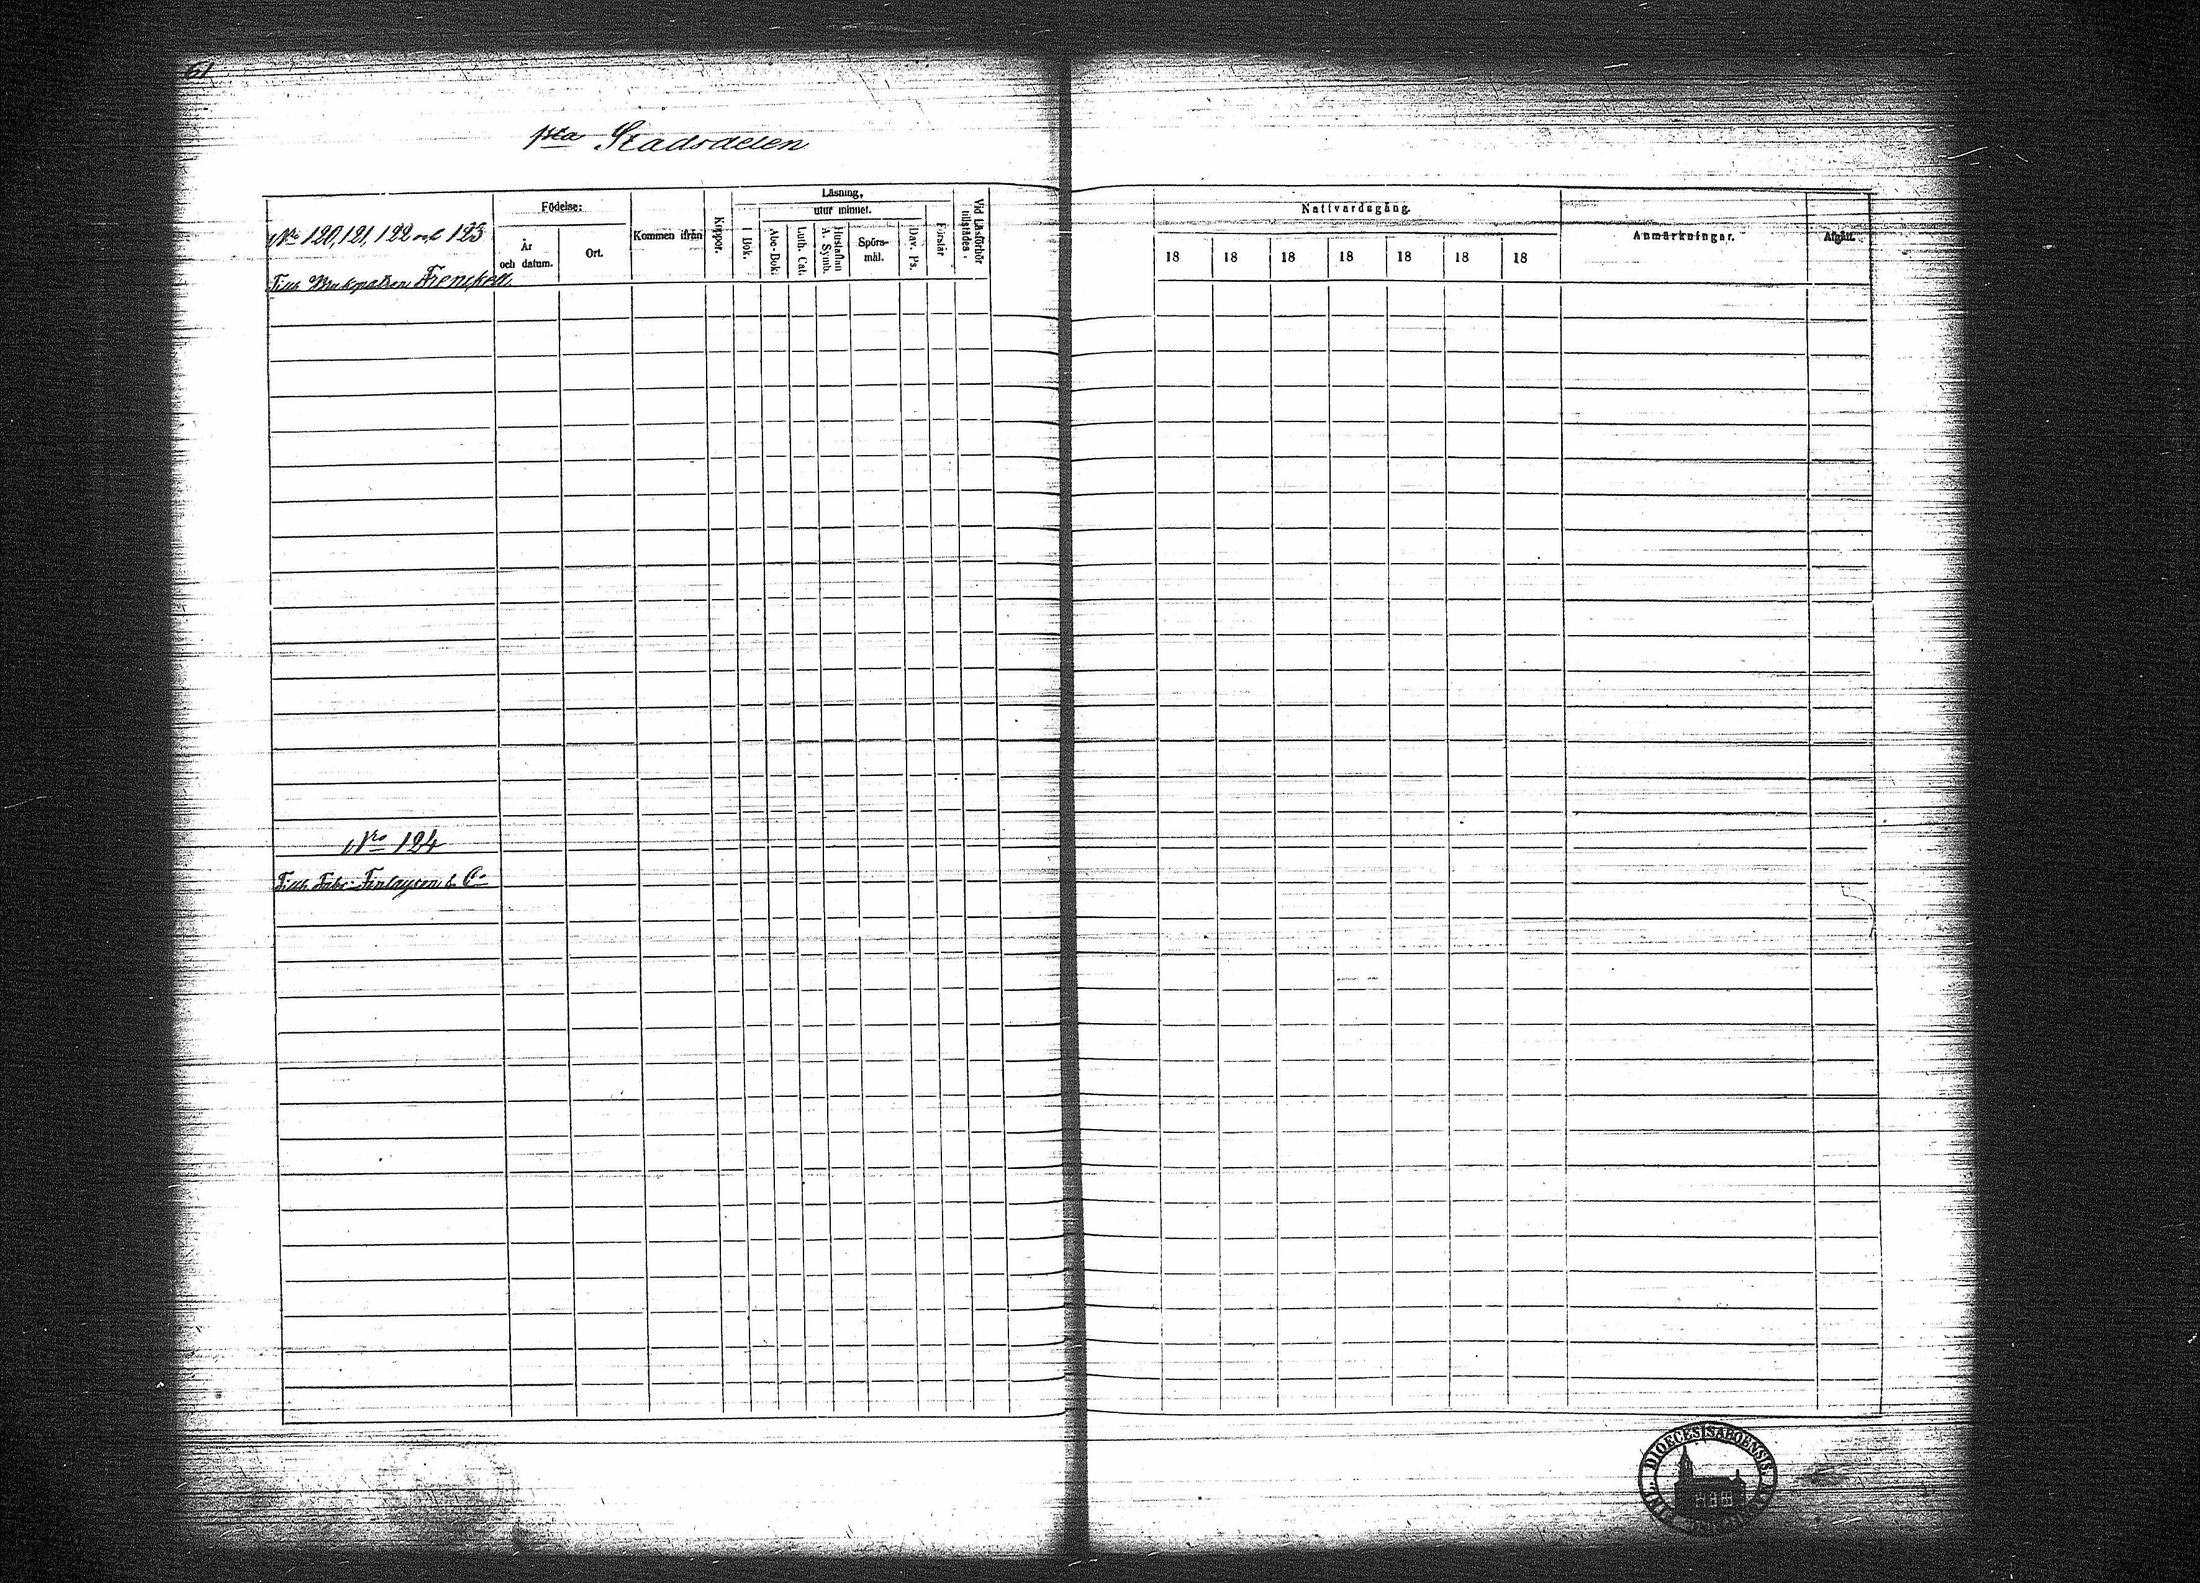 61
1sta Stadsdelen
No 120, 121, 122 och 123
Tillh. Brukspatron Frenckell
Födelse:
År
och datum.
Ort.
Kommen ifrån
Koppor.
Läsning,
utur minnet.
I Bok.
Abc-Bok.
Luth. Cat.
Hustaflan
A. Symb.
Spörs-
mål.
Dav. Ps.
Förstår
Vid Läsförhör
tillstädes.
Nattvardsgång.
18 18 18 18 18 18 18
Anmärkningar.
Afgått.
Nro 124
Tillh. Fabr. Finlayson & Co
DIOECESIS ABOENSIS